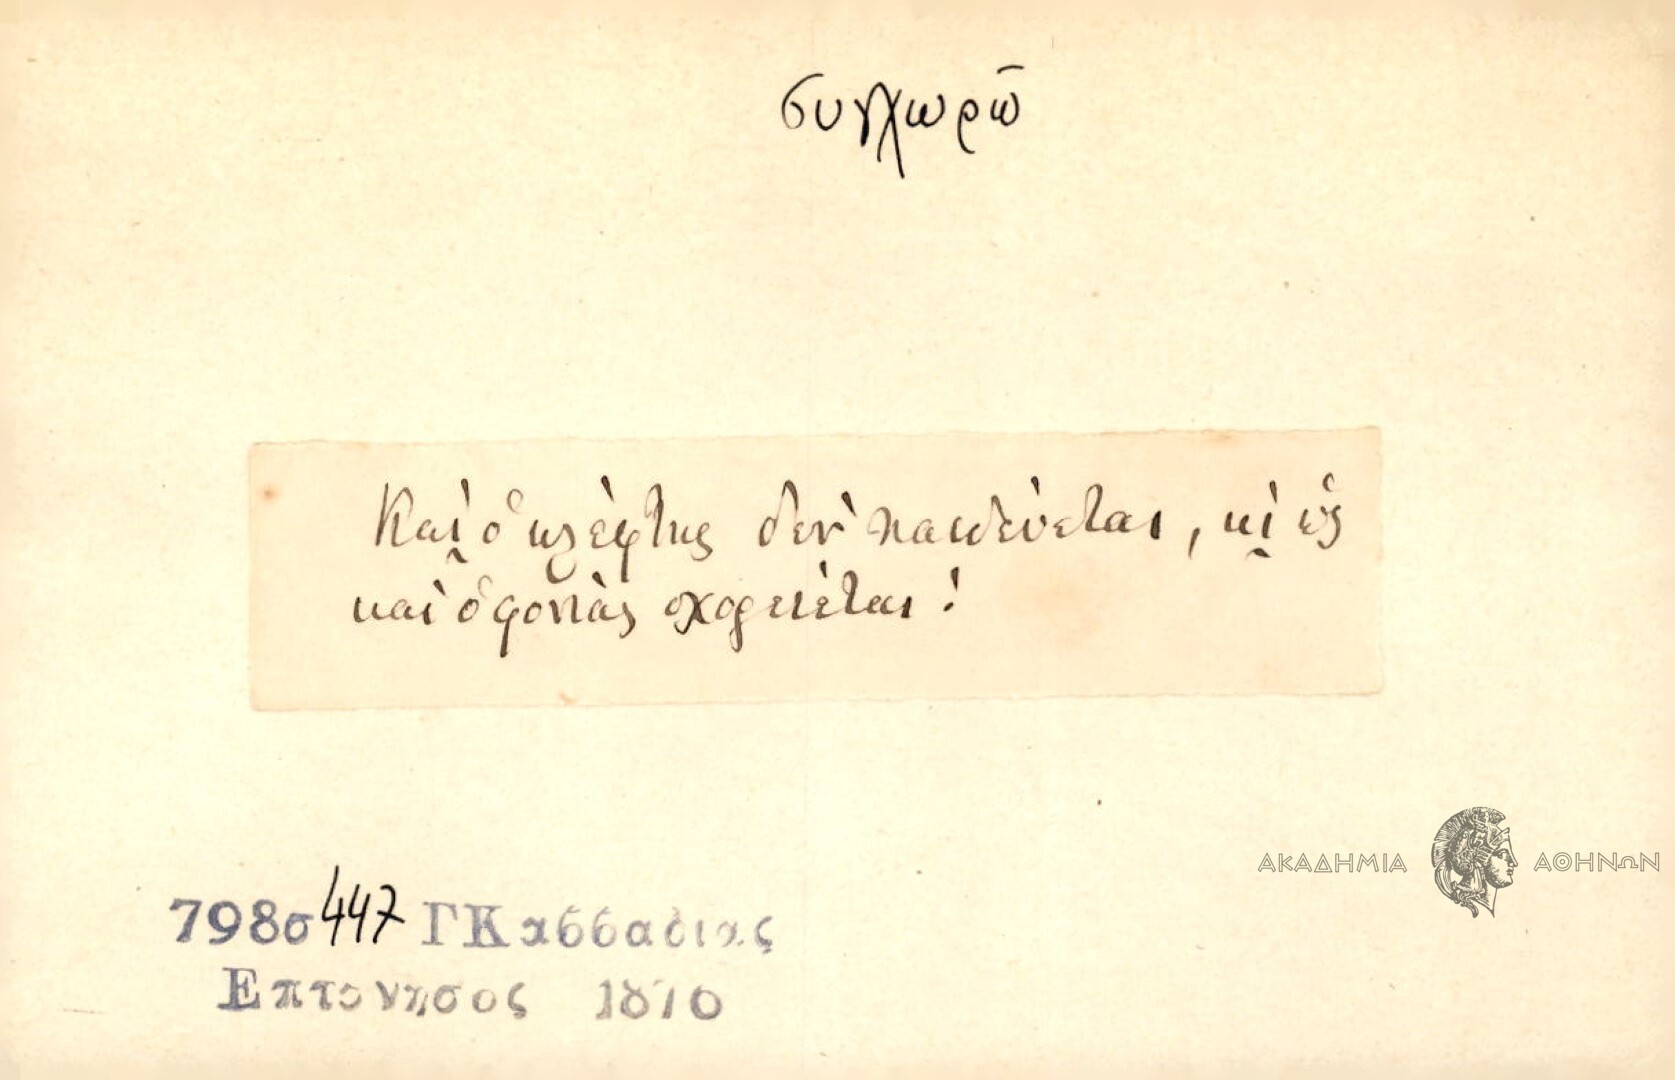 συγχωρῶ
Καὶ ὁ κλέφτης δὲν παιδεύεται, κὶ
καὶ ὁ φονιὰς σχορειέται!
798σ 447 ΓΚασσαδιας
Επτανησος 1870
ΑΚΑΔΗΜΙΑ ΑΘΗΝΩΝ